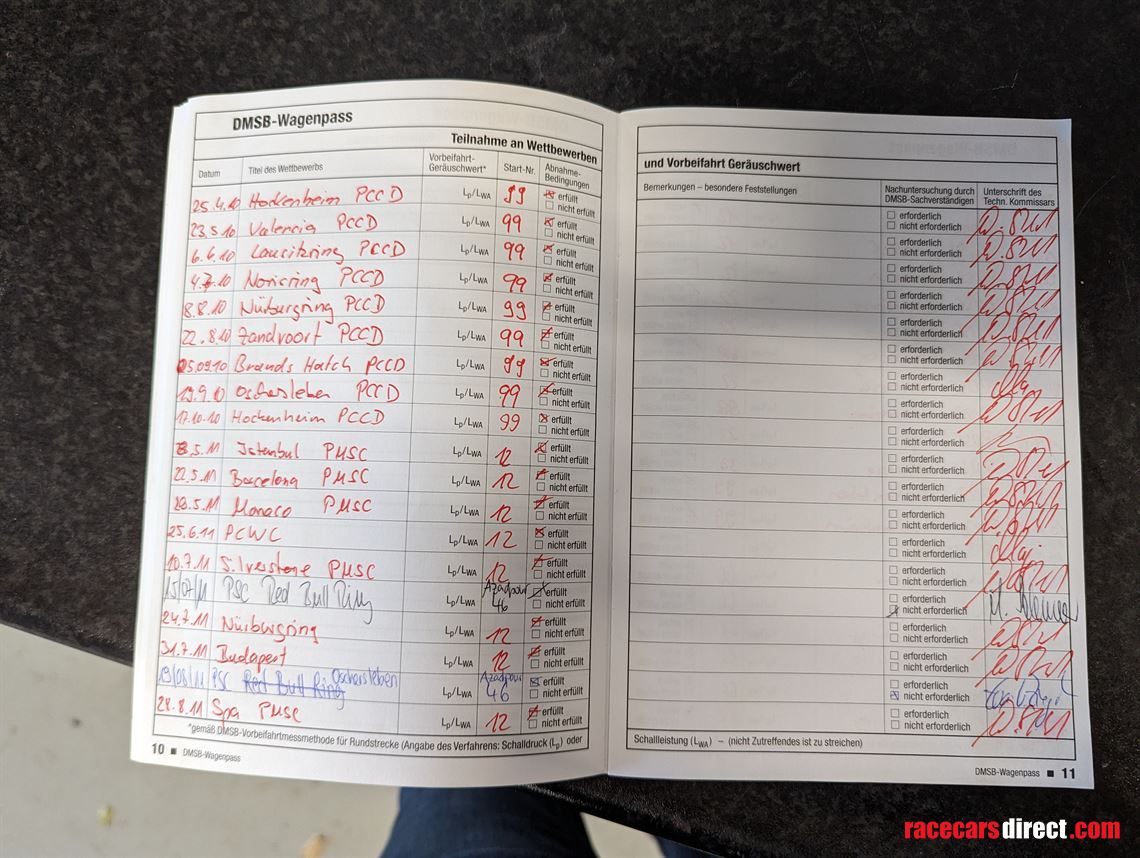 DMSB-Wagenpass
Teilnahme an Wettbewerben
Datum Titel des Wettbewerbs Vorbeifahrt-Geräuschwert* Start-Nr. Abnahme-Bedingungen
25.4.10 Hockenheim PCCD Lp/LWA 99 erfüllt
nicht erfüllt
23.5.10 Valencia PCCD Lp/LWA 99 erfüllt
nicht erfüllt
6.6.10 Lausitzring PCCD Lp/LWA 99 erfüllt
nicht erfüllt
4.7.10 Norisring PCCD Lp/LWA 99 erfüllt
nicht erfüllt
8.8.10 Nürburgring PCCD Lp/LWA 99 erfüllt
nicht erfüllt
22.8.10 Zandvoort PCCD Lp/LWA 99 erfüllt
nicht erfüllt
05.09.10 Brands Hatch PCCD Lp/LWA 99 erfüllt
nicht erfüllt
19.9.10 Oschersleben PCCD Lp/LWA 99 erfüllt
nicht erfüllt
17.10.10 Hockenheim PCCD Lp/LWA 99 erfüllt
nicht erfüllt
8.5.11 Istanbul PMSC Lp/LWA 12 erfüllt
nicht erfüllt
22.5.11 Barcelona PMSC Lp/LWA 12 erfüllt
nicht erfüllt
28.5.11 Monaco PMSC Lp/LWA 12 erfüllt
nicht erfüllt
25.6.11 PCWC Lp/LWA 12 erfüllt
nicht erfüllt
10.7.11 Silverstone PMSC Lp/LWA 12 erfüllt
nicht erfüllt
15/07/11 PSC Red Bull Ring Lp/LWA Azadpour 46 erfüllt
nicht erfüllt
24.7.11 Nürburgring Lp/LWA 12 erfüllt
nicht erfüllt
31.7.11 Budapest Lp/LWA 12 erfüllt
nicht erfüllt
19/08/11 PSC Red Bull Ring Oschersleben Lp/LWA Azadpour 46 erfüllt
nicht erfüllt
28.8.11 Spa PMSC Lp/LWA 12 erfüllt
nicht erfüllt
*gemäß DMSB-Vorbeifahrtmessmethode für Rundstrecke (Angabe des Verfahrens: Schalldruck (Lp) oder
10 ■ DMSB-Wagenpass
und Vorbeifahrt Geräuschwert
Bemerkungen – besondere Feststellungen Nachuntersuchung durch DMSB-Sachverständigen Unterschrift des Techn. Kommissars
erforderlich
nicht erforderlich
erforderlich
nicht erforderlich
erforderlich
nicht erforderlich
erforderlich
nicht erforderlich
erforderlich
nicht erforderlich
erforderlich
nicht erforderlich
erforderlich
nicht erforderlich
erforderlich
nicht erforderlich
erforderlich
nicht erforderlich
erforderlich
nicht erforderlich
erforderlich
nicht erforderlich
erforderlich
nicht erforderlich
erforderlich
nicht erforderlich
erforderlich
nicht erforderlich
erforderlich
nicht erforderlich
erforderlich
nicht erforderlich
erforderlich
nicht erforderlich
erforderlich
nicht erforderlich
erforderlich
nicht erforderlich
Schallleistung (LWA) – (nicht Zutreffendes ist zu streichen)
DMSB-Wagenpass ■ 11
racecarsdirect.com